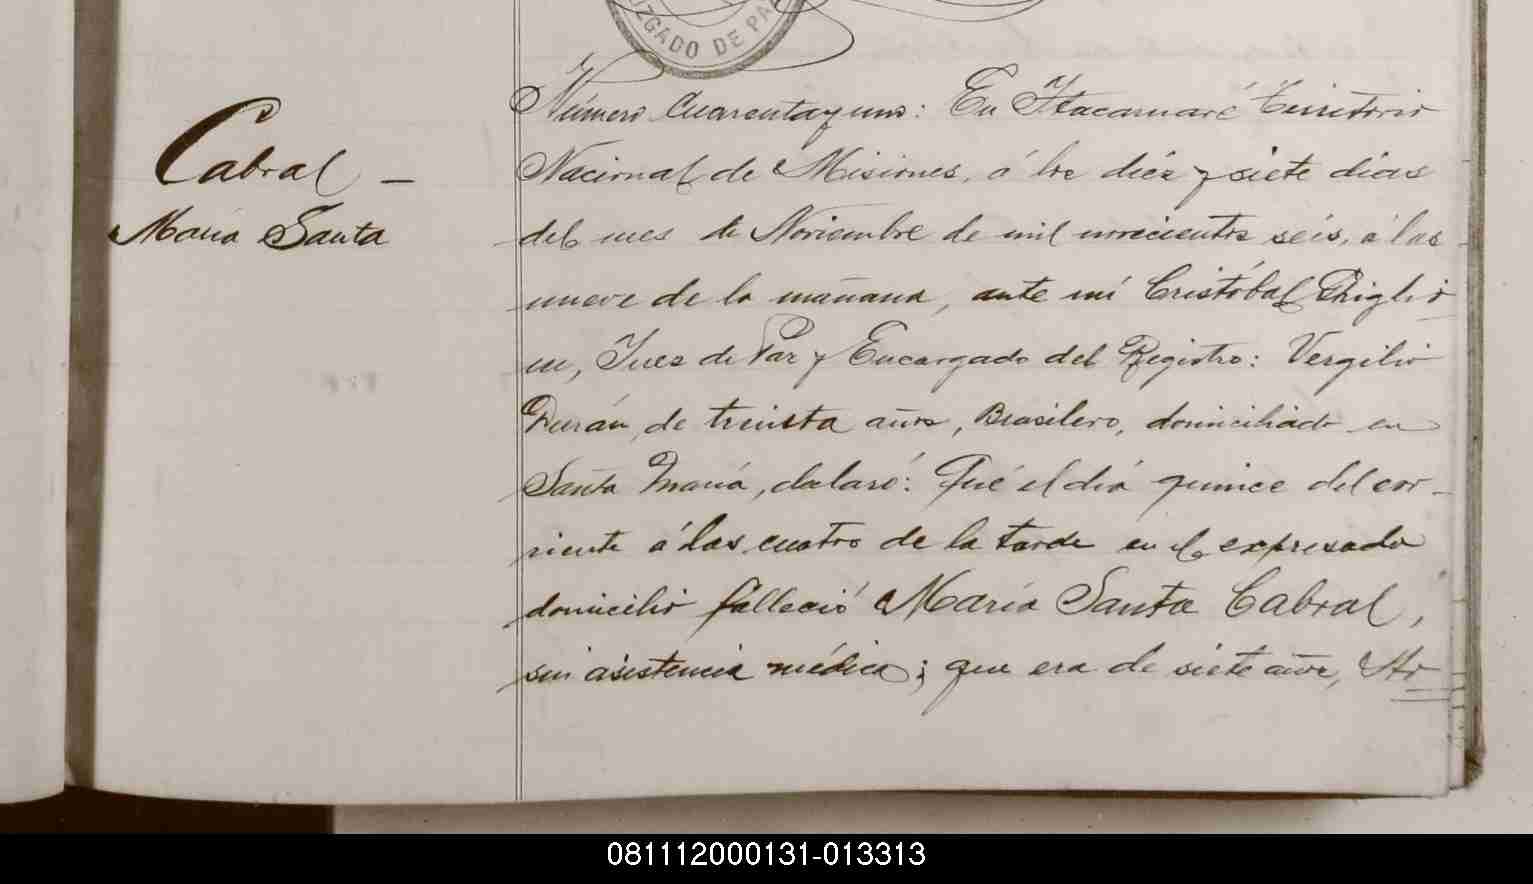 JUZGADO DE PAZ
Cabral -
María Santa
Número Cuarentayuno: En Itacaruaré Territorio
Nacional de Misiones, á los diéz y siete dias
del mes de Noviembre de mil novecientos séis, á las
nueve de la mañana, ante mí Cristóbal Chiglio
ne, Juez de Paz y Encargado del Registro: Vergilio
Durán, de treinta años, Brasilero, domiciliado en
Santa María, declaró: Qué el día quince del cor-
riente á las cuatro de la tarde en el expresado
domicilio falleció María Santa Cabral,
sin asistencia médica; que era de siete años, Ar
081112000131-013313